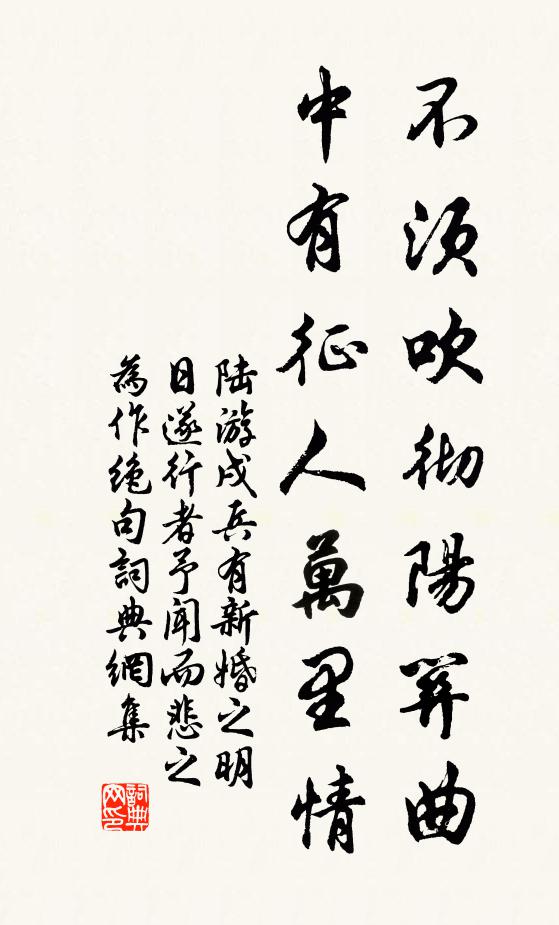 不須吹彻陽关曲
中有征人萬里情
陆游戍兵有新婚之明
日遂行者予闻而悲之
為作绝句詞典網集
詞典网印